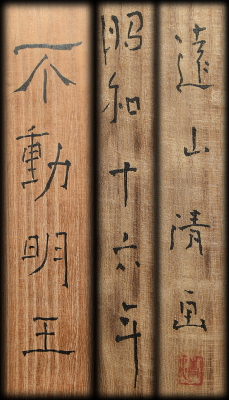 不動明王
昭和十六年
遠山清画